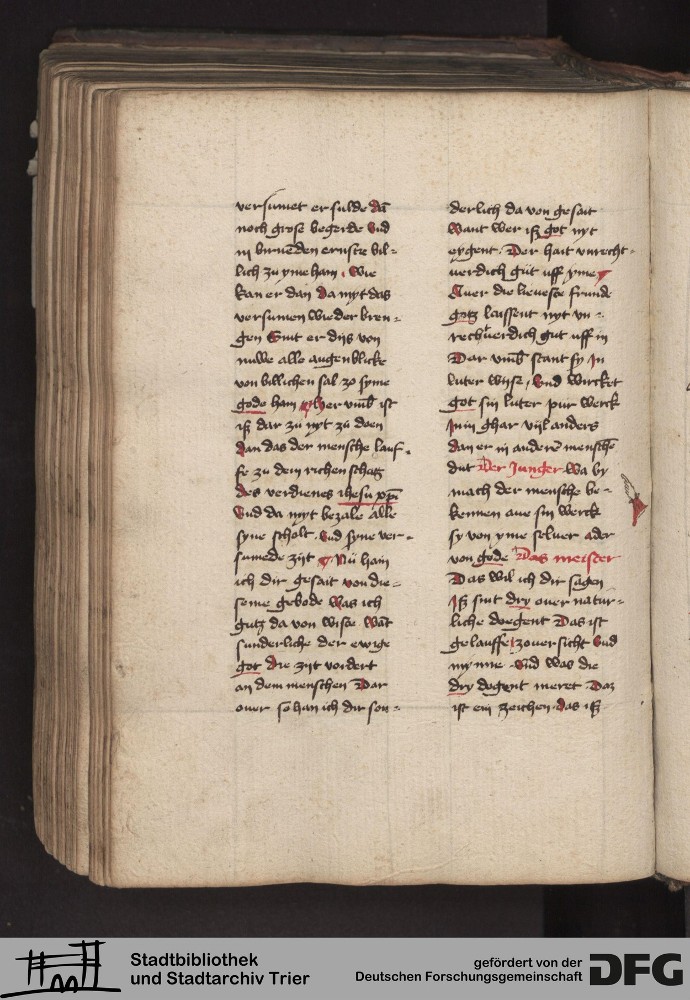 versumet er sulde dā
noch grose begerde vnd
in burnēden ernste bil=
lich zu yme ham. Wie
kan er dan da myt das
versumen wieder bren=
gen Snut er dijs von
nuwe alle augenblicke
von billichen sal zo syme
gode ham vmb ist
iß dar zu nyt zu doen
dan das der mensche lauf=
fe zu dem richen schatz
des verdienes ihesu xpi
vnd da myt bezale alle
syne scholt. vnd syne ver=
sumede zijt Nū hain
ich dir gesait von die=
seme gebode Was ich
gutz da von wise. Wāt
sunderliche der ewige
got die zijt vordert
an dem menschen Dar
ouer so han ich dir son=
derlich da von gesait
Want wer iß got nyt
eygent. Der hait vnrecht=
uerdich gut uff yme
Auer die lieueste frunde
gotz laissent nyt vn=
rechuerdich gut uff in
Dar vmb stant sy In
luter wise, vnd wircket
got sin luter pur werck
In in ghar vijl anders
dan er in anderē menschē
dut Der Junger Wa by
mach der mensche be=
kennen aue sin werck
sy von yme seluer ader
von gode Das meister
Das wil ich dir sagen
Iß sint dry ouer natur=
liche doegent Das ist
gelauffe zouersicht vnd
mynne. vnd was die
dry dogent meret. Daz
ist ein zeichen. das iß
Stadtbibliothek
und Stadtarchiv Trier
gefördert von der
Deutschen Forschungsgemeinschaft
DFG